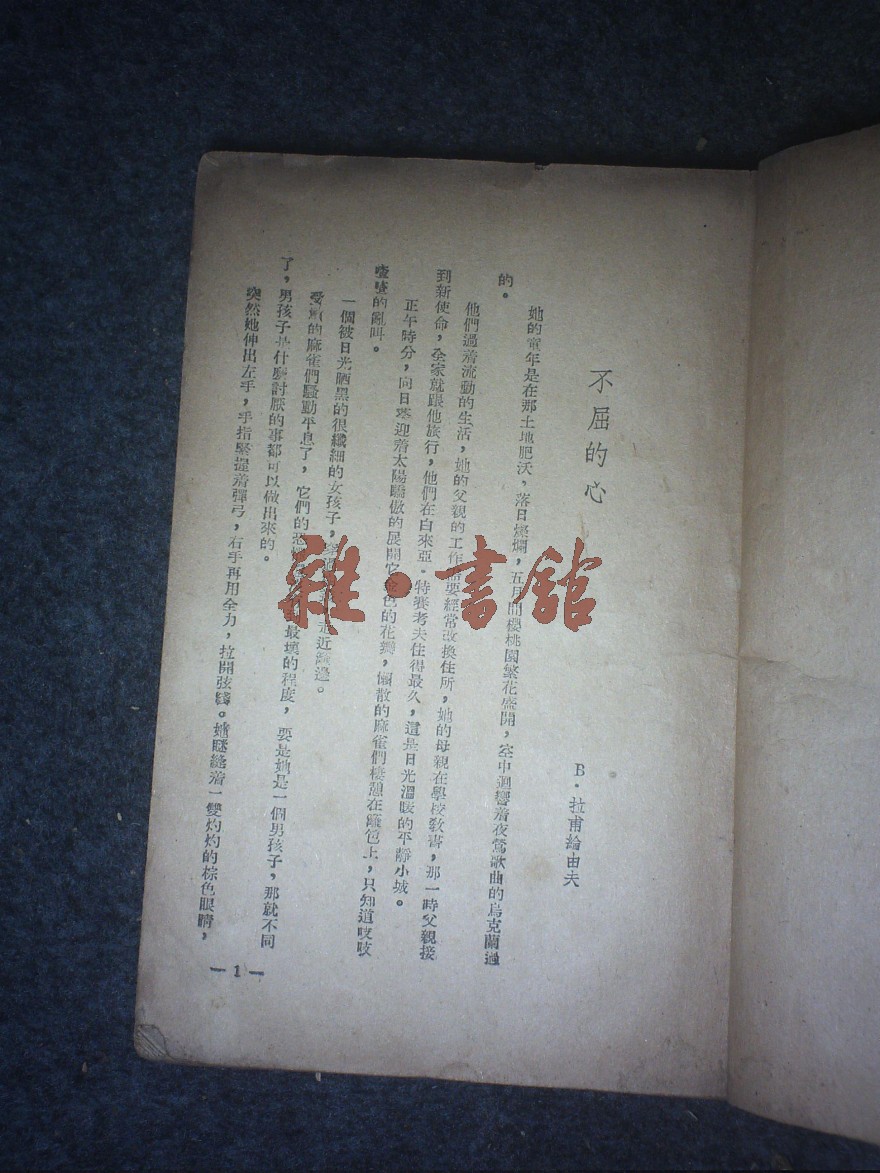 不屈的心
B・拉甫綸由夫
她的童年是在那土地肥沃，落日燦爛，五月間櫻桃園繁花盛開，空中迴響着夜鶯歌曲的烏克蘭過
的。
他們過着流動的生活，她的父親的工作需要經常改換住所，她的母親在學校教書，那一時父親接
到新使命，全家就跟他旅行，他們在白來亞・特賽考夫住得最久，這是日光溫暖的平靜小城。
正午時分，向日葵迎着太陽驕傲的展開它 色的花瓣，懶散的麻雀們棲憩在籬笆上，只知道吱吱
喳喳的亂叫。
一個被日光晒黑的很纖細的女孩子， 走近籬邊。
受驚的麻雀們騷動平息了，它們的恐 最壞的程度，要是她是一個男孩子，那就不同
了，男孩子是什麼討厭的事都可以做出來的。
突然她伸出左手，手指緊握着彈弓，右手再用全力，拉開弦綫。她瞇縫着一雙灼灼的棕色眼睛，
— 1 —
雜・書館